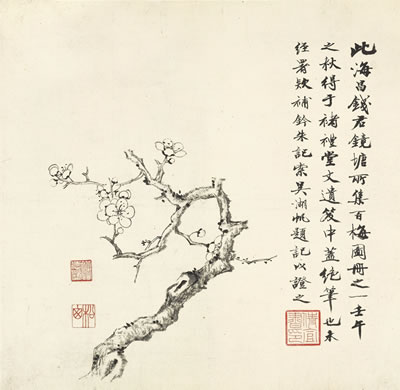 此海昌錢君鏡塘所集百梅圖冊之一壬午
之秋得于褚禮堂文遺笈中蓋絕筆也未
經署款補鈐朱記索吳湖帆題記以證之